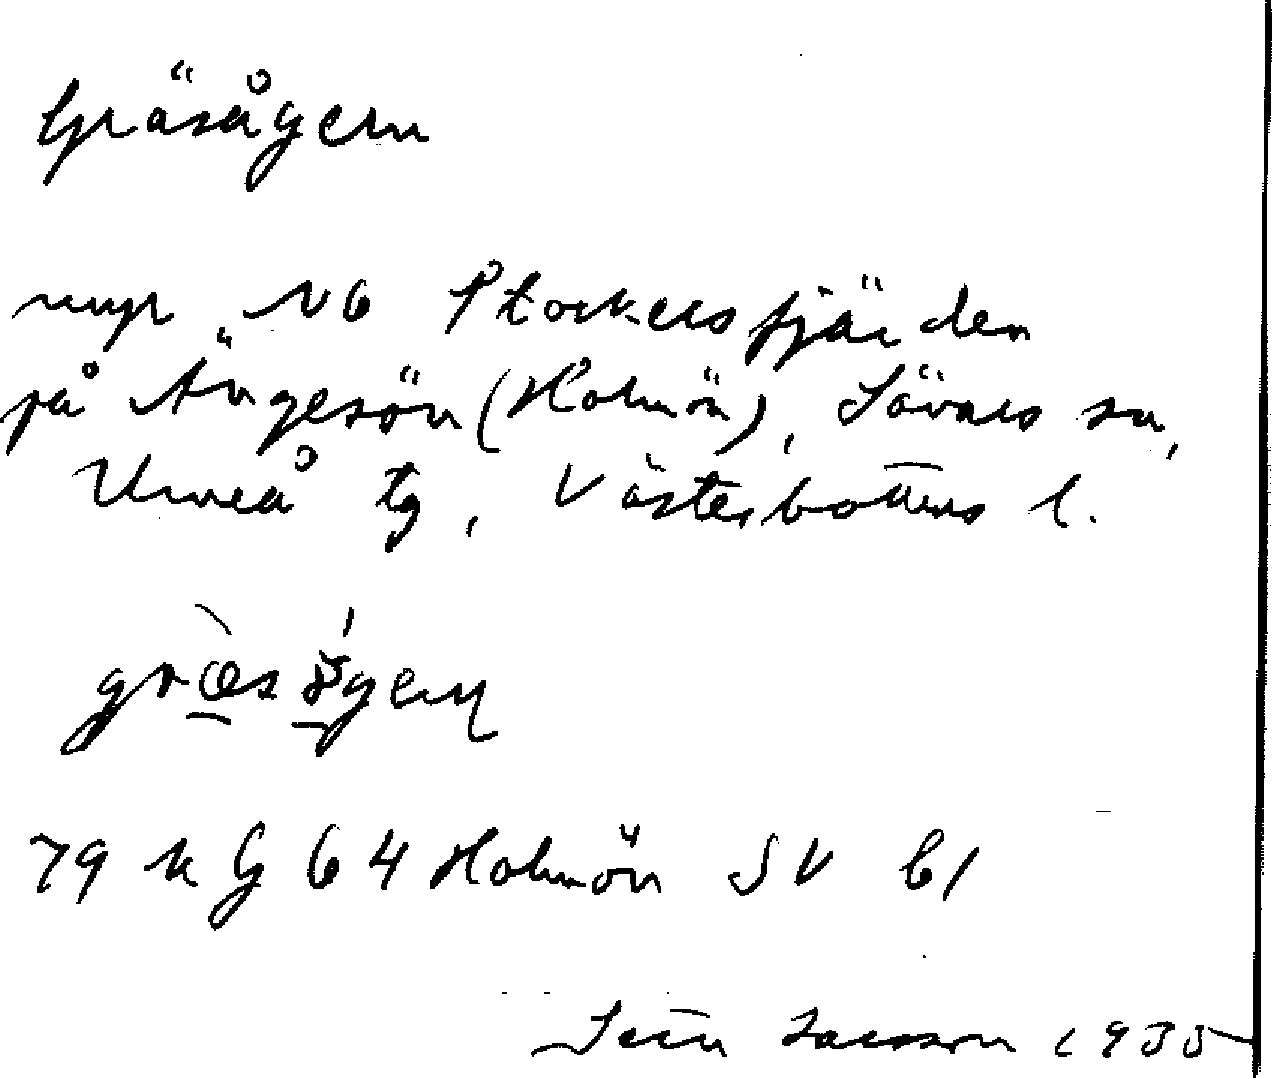 Gräsågern
myr NO Stockersfjärden
på Ängesön (Holmön), Sävars sn,
Umeå tg, Västerbottens l.
79 k G 64 Holmön SV b1
Larsson 1935